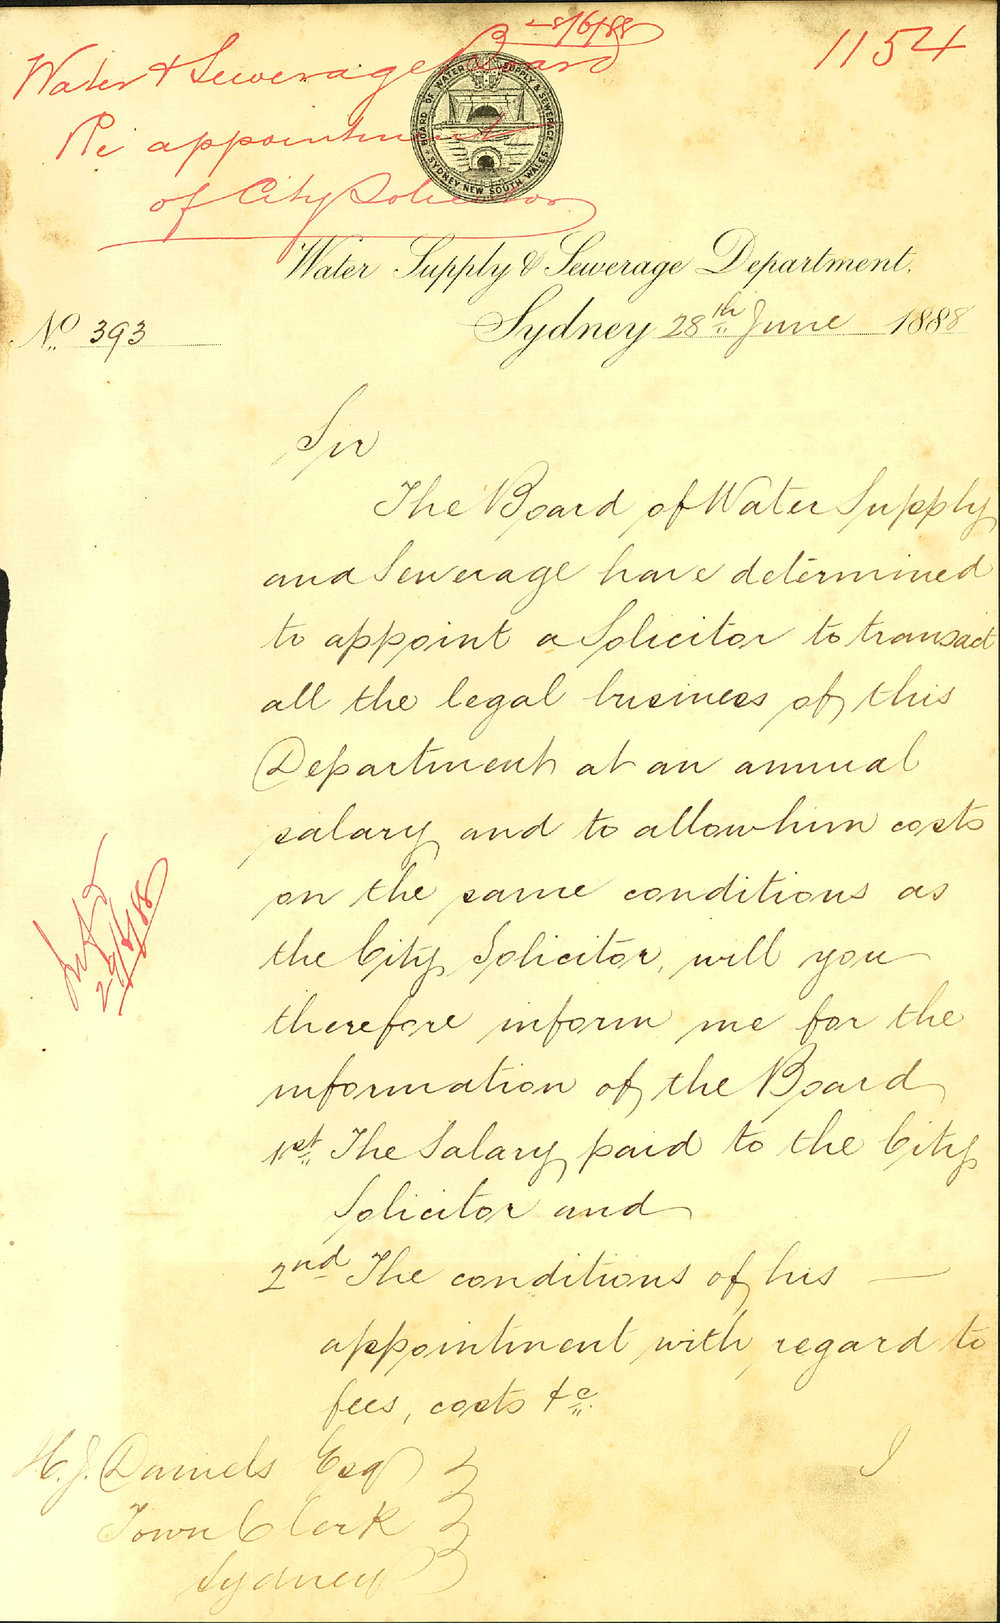 28/6/88
1154
Water & Sewerage Board
Re appointment
of City Solicitor
BOARD OF WATER SUPPLY & SEWERAGE
SYDNEY NEW SOUTH WALES
Water Supply & Sewerage Department.
No. 393
Sydney 28th June 1888
Sir
The Board of Water Supply
and Sewerage have determined
to appoint a Solicitor to transact
all the legal business of this
Department at an annual
salary and to allow him costs
on the same conditions as
the City Solicitor, will you
therefore inform me for the
information of the Board
1st. The Salary paid to the City
Solicitor and
2nd The conditions of his —
appointment with regard to
fees, costs &c.
29/6/88
H. J. Daniels Esq
Town Clerk
Sydney
I